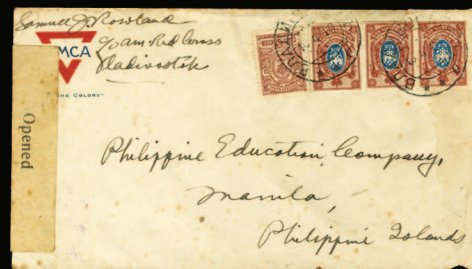 Samuel J. Rowland
YMCA
℅ Am. Red Cross
Vladivostok
THE COLORS"
Opened
Philippine Education Company,
Manila,
Philippine Islands